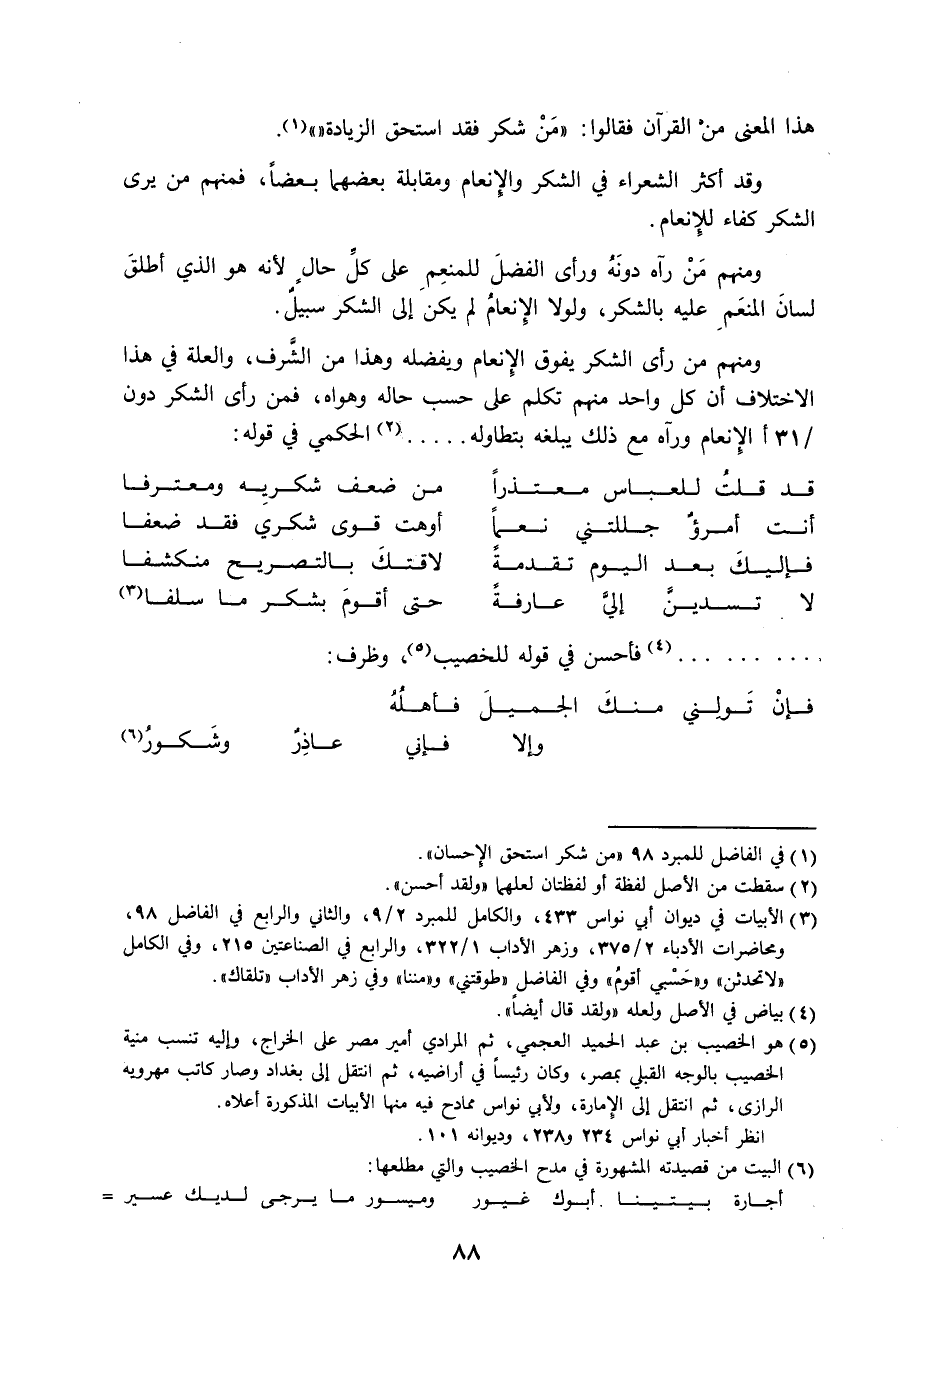 هذا المعنى من القرآن فقالوا: «مَنْ شكر فقد استحق الزيادة»(١).
وقد أكثر الشعراء في الشكر والإنعام ومقابلة بعضها بعضاً، فمنهم من يرى
الشكر كفاء للإنعام.
ومنهم مَنْ رآه دونَهُ ورأى الفضلَ للمنعِم على كلِّ حالٍ لأنه هو الذي أطلقَ
لسانَ المنعَمِ عليه بالشكر، ولولا الإنعامُ لم يكن إلى الشكر سبيلٌ.
ومنهم من رأى الشكر يفوق الإنعام ويفضله وهذا من الشَّرف، والعلة في هذا
الاختلاف أن كل واحد منهم تكلم على حسب حاله وهواه، فمن رأى الشكر دون
/٣١ أ الإنعام ورآه مع ذلك يبلغه بتطاوله.....(٢) الحكمي في قوله:
قد قلتُ للعباس معتذراً من ضعف شكريه ومعترفا
أنت أمرؤٌ جللتني نعماً أوهت قوى شكري فقد ضعفا
فإليكَ بعد اليوم تقدمةً لاقتكَ بالتصريح منكشفا
لا تسدينَّ إليَّ عارفةً حتى أقومَ بشكر ما سلفا(٣)
..........(٤) فأحسن في قوله للخصيب(٥)، وظرف:
فإنْ تَولني منكَ الجميلَ فأهلُهُ
وإلا فإني عاذِرٌ وشَكورُ(٦)
(١) في الفاضل للمبرد ٩٨ «من شكر استحق الإحسان».
(٢) سقطت من الأصل لفظة أو لفظتان لعلها «ولقد أحسن».
(٣) الأبيات في ديوان أبي نواس ٤٣٣، والكامل للمبرد ٩/٢، والثاني والرابع في الفاضل ٩٨،
ومحاضرات الأدباء ٣٧٥/٢، وزهر الأداب ٣٢٢/١، والرابع في الصناعتين ٢١٥، وفي الكامل
«لاتحدثن» و«حَسْبي أقومُ» وفي الفاضل «طوقتني» و«مننا» وفي زهر الأداب «تلقاك».
(٤) بياض في الأصل ولعله «ولقد قال أيضاً».
(٥) هو الخصيب بن عبد الحميد العجمي، ثم المرادي أمير مصر على الخراج، وإليه تنسب منية
الخصيب بالوجه القبلي بمصر، وكان رئيساً في أراضيه، ثم انتقل إلى بغداد وصار كاتب مهرويه
الرازي، ثم انتقل إلى الإمارة، ولأبي نواس ممادح فيه منها الأبيات المذكورة أعلاه.
انظر أخبار أبي نواس ٢٣٤ و٢٣٨، وديوانه ١٠١.
(٦) البيت من قصيدته المشهورة في مدح الخصيب والتي مطلعها:
أجارة بيتينا أبوك غيور وميسور ما يرجى لديك عسير =
٨٨